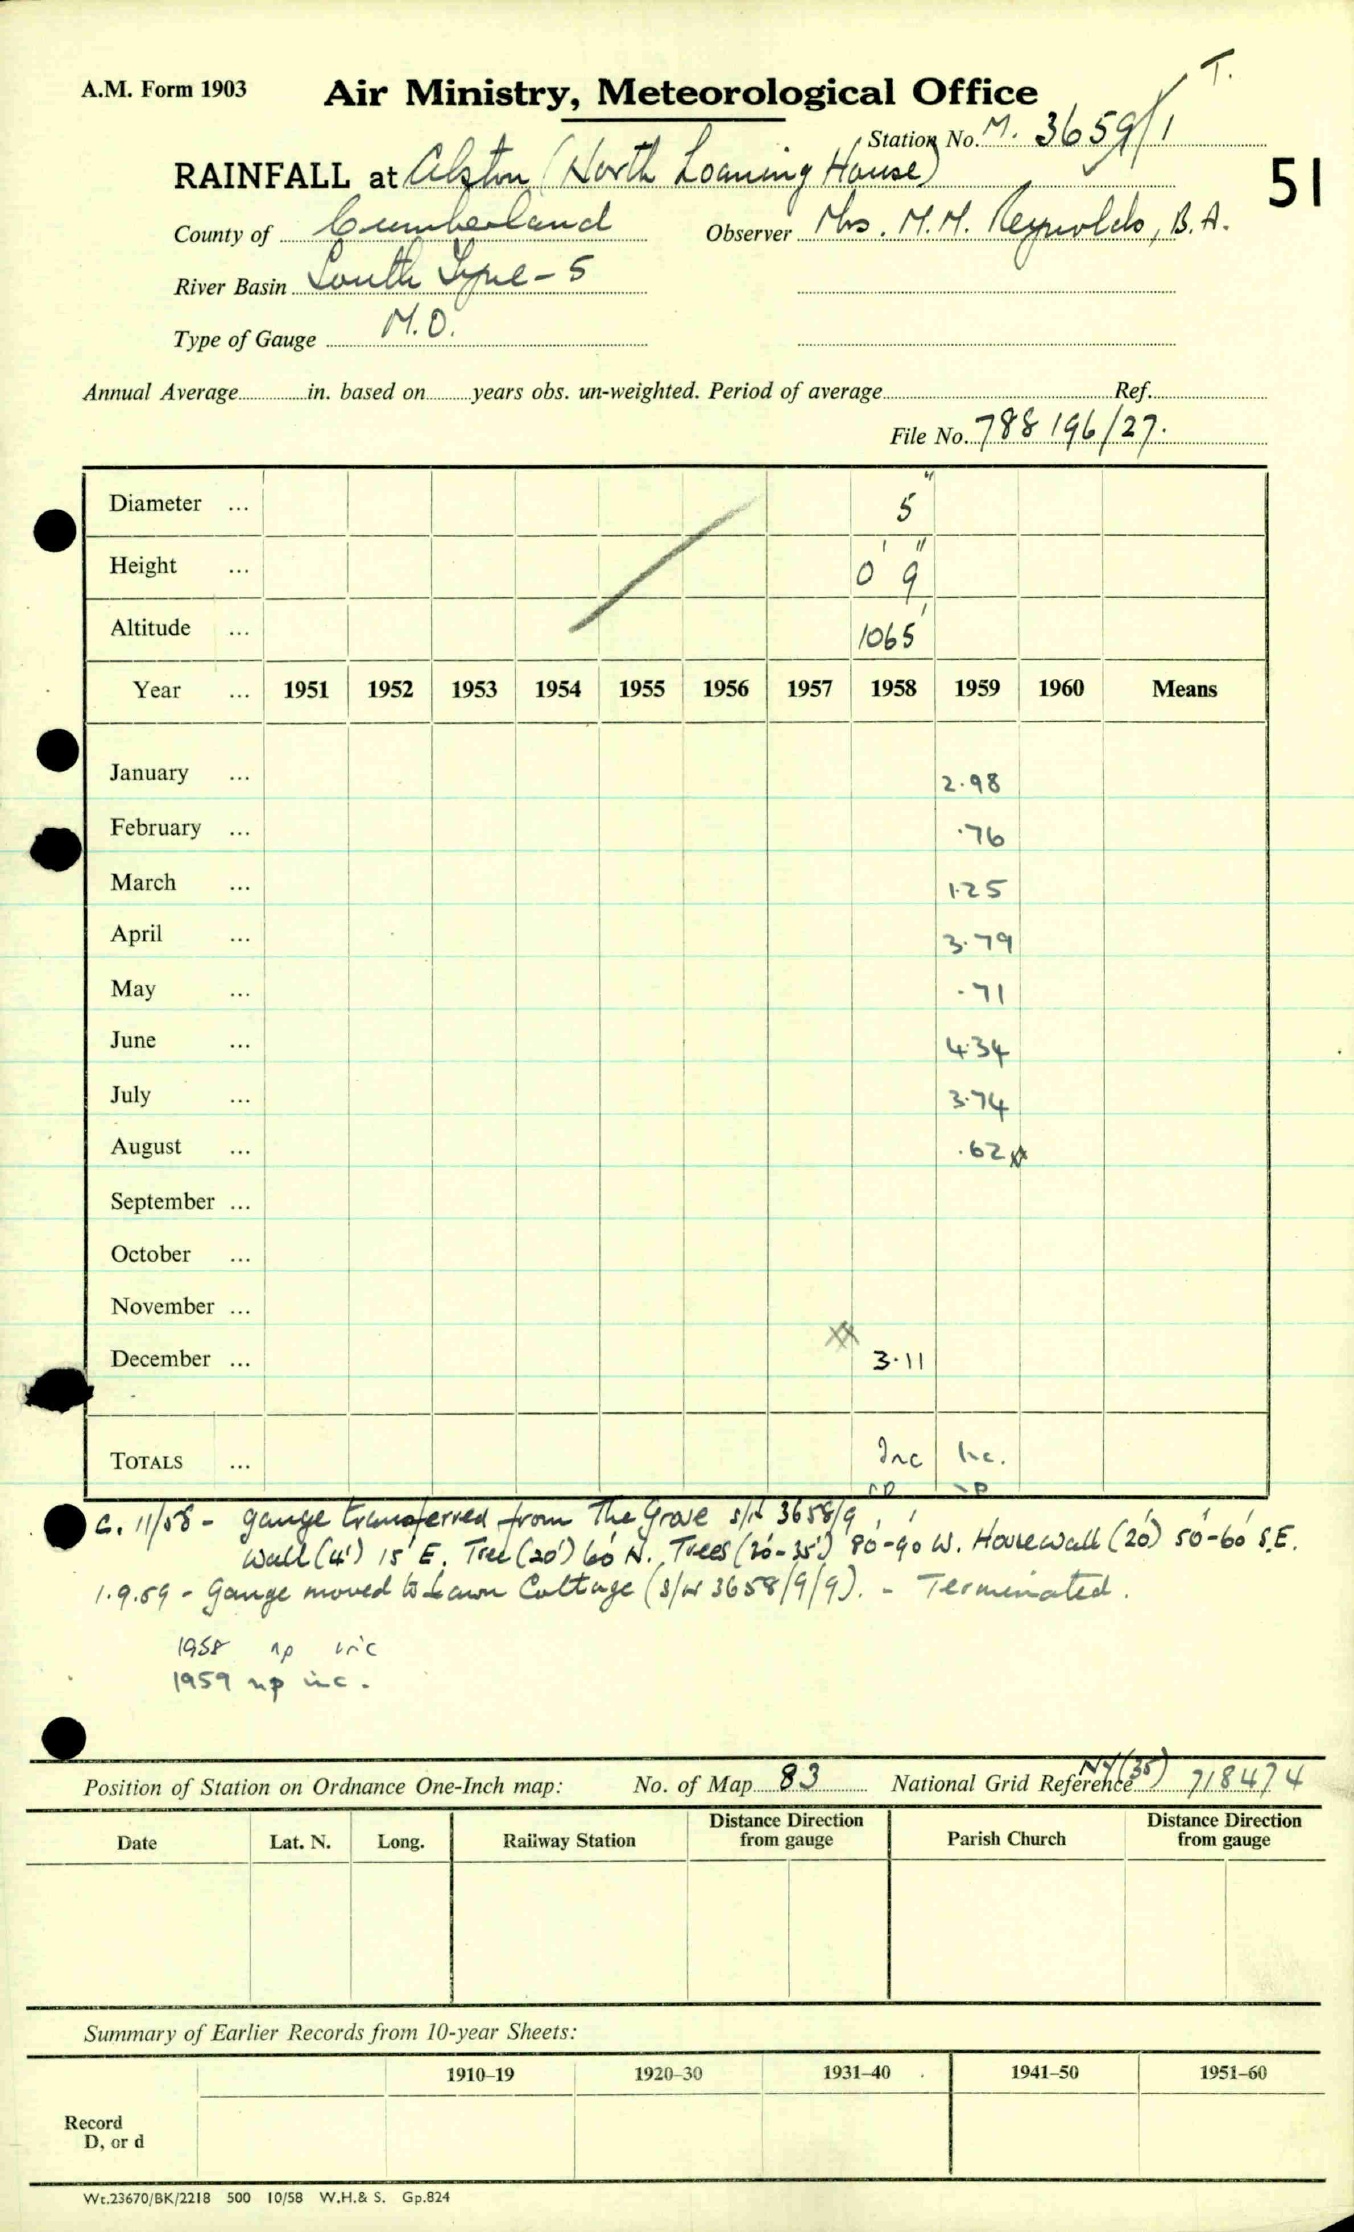 T.
A.M. Form 1903 Air Ministry, Meteorological Office
Station No. M. 3659/1
RAINFALL at Alston (North Loaning House) 51
County of Cumberland Observer Mrs. M.M. Reynolds, B.A.
River Basin South Tyne - 5
Type of Gauge M.O.
Annual Average in. based on years obs. un-weighted. Period of average Ref.
File No. 788196/27.
Diameter ... 5"
Height ... 0' 9"
Altitude ... 1065'
Year ... 1951 1952 1953 1954 1955 1956 1957 1958 1959 1960 Means
January ... 2.98
February ... .76
March ... 1.25
April ... 3.79
May ... .71
June ... 4.34
July ... 3.74
August ... .62
September ...
October ...
November ...
December ... 3.11
TOTALS ... Inc Inc.
np np
c. 11/58 - gauge transferred from The Grove s/n 3658/9
Wall (4') 15' E. Tree (20') 60' N. Trees (30'-35') 80'-90' W. House wall (20') 50'-60' S.E.
1.9.59 - Gauge moved to Lawn Cottage (s/n 3658/9/9). - Terminated.
1958 np inc
1959 np inc.
Position of Station on Ordnance One-Inch map: No. of Map 83 National Grid Reference NY(35) 718474
Date Lat. N. Long. Railway Station Distance Direction from gauge Parish Church Distance Direction from gauge
Summary of Earlier Records from 10-year Sheets:
1910–19 1920–30 1931–40 1941–50 1951–60
Record
D, or d
Wt.23670/BK/2218 500 10/58 W.H.& S. Gp.824